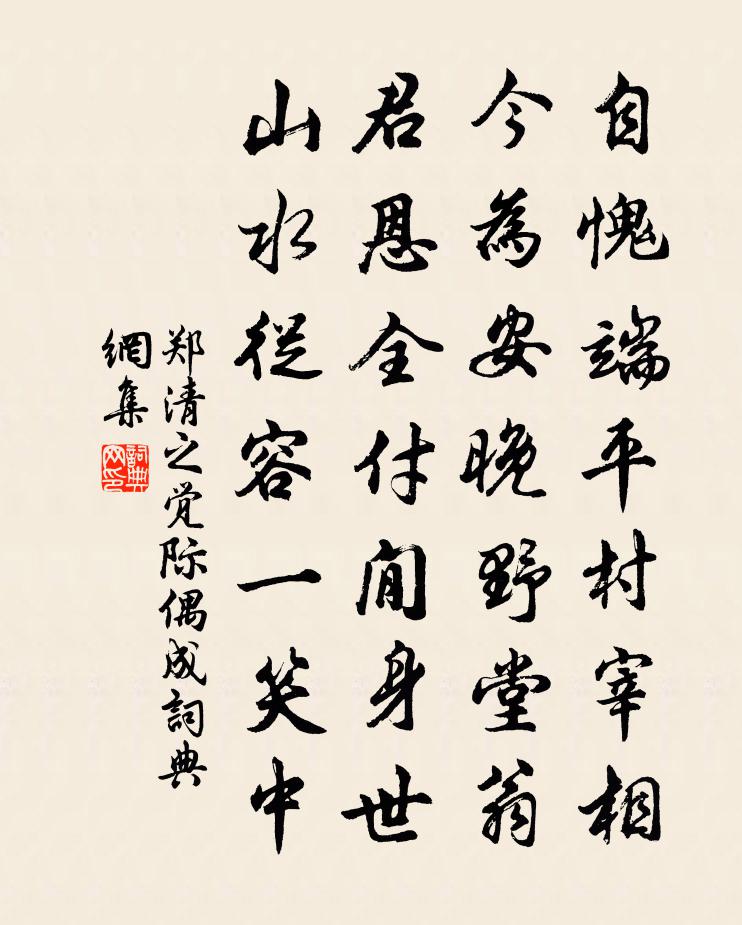 自愧端平村宰相
今為安晚野堂翁
君恩全付閒身世
山水從容一笑中
郑清之觉际偶成詞典
網集
詞典
网印